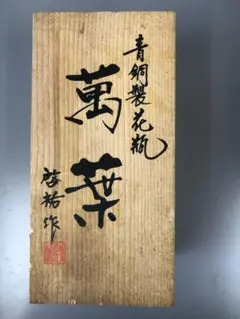 青銅製花瓶
萬葉
啓祐作